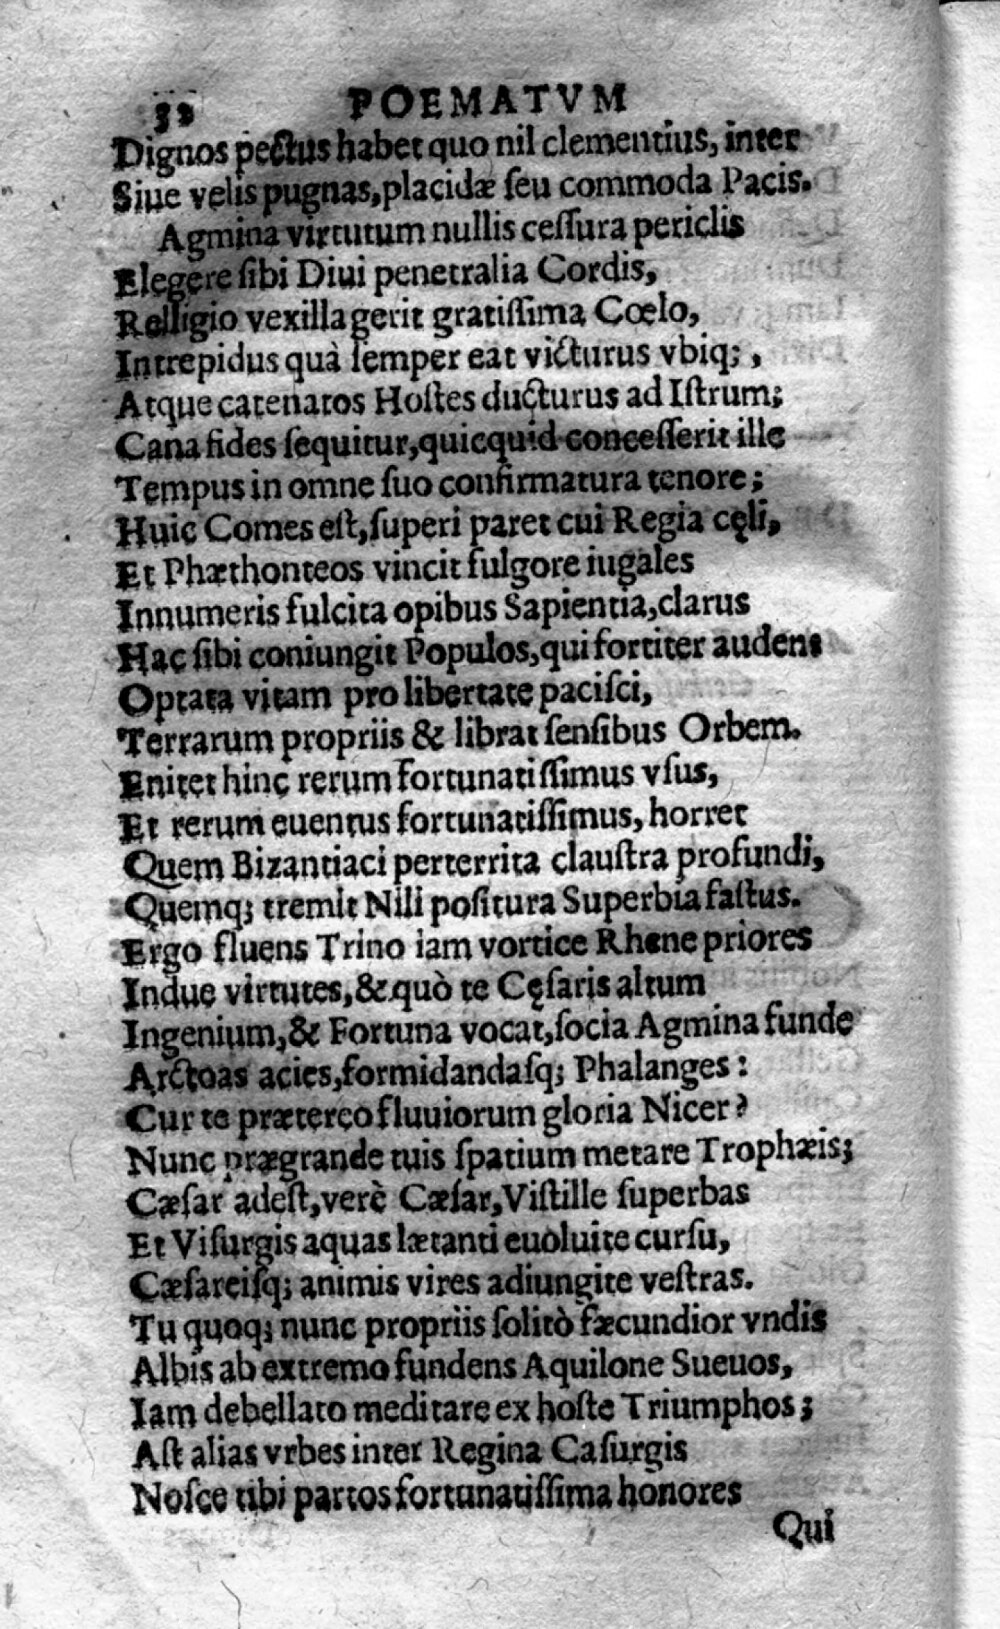 32 POEMATVM
Dignos pectus habet quo nil clementius, inter
Siue velis pugnas, placidæ seu commoda Pacis.
Agmina virtutum nullis cessura periclis
Elegere sibi Diui penetralia Cordis,
Relligio vexilla gerit gratissima Cœlo,
Intrepidus quà semper eat victurus vbiq; ,
Atque catenatos Hostes ducturus ad Istrum;
Cana fides sequitur, quicquid concesserit ille
Tempus in omne suo confirmatura tenore;
Huic Comes est, superi paret cui Regia cęli,
Et Phæthonteos vincit fulgore iugales
Innumeris fulcita opibus Sapientia, clarus
Hac sibi coniungit Populos, qui fortiter audent
Optata vitam pro libertate pacisci,
Terrarum propriis & librat sensibus Orbem.
Enitet hinc rerum fortunatissimus vsus,
Et rerum euentus fortunatissimus, horret
Quem Bizantiaci perterrita claustra profundi,
Quemq; tremit Nili positura Superbia fastus.
Ergo fluens Trino iam vortice Rhene priores
Indue virtutes, & quò te Cęsaris altum
Ingenium, & Fortuna vocat, socia Agmina funde
Arctoas acies, formidandasq; Phalanges:
Cur te prætereo fluuiorum gloria Nicer?
Nunc prægrande tuis spatium metare Trophæis;
Cæsar adest, verè Cæsar, Vistille superbas
Et Visurgis aquas lætanti euoluite cursu,
Cæsareisq; animis vires adiungite vestras.
Tu quoq; nunc propriis solitò fæcundior vndis
Albis ab extremo fundens Aquilone Sueuos,
Iam debellato meditare ex hoste Triumphos;
Ast alias vrbes inter Regina Casurgis
Nosce tibi partos fortunatissima honores
Qui